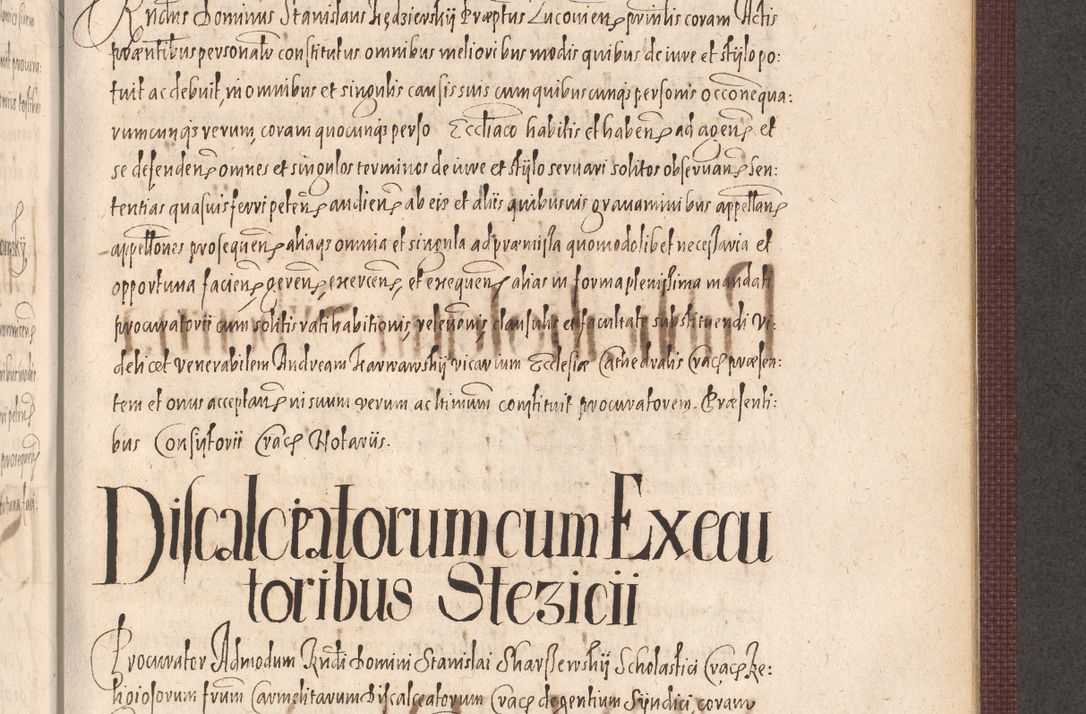 Rndus Dominus Stanislaus Kędzierskij Præptus Luconiens printis coram Actis
præntibus personalr constitutus omnibus melioribus modis quibus de iure et stijlo po:
tuit ac debuit, in omnibus et singulis causis suis cum quibuscunqs personis occoneque
rumcunqs rerum, coram quocunqs perso Eccliaco habitis et haben ad agen et
se defenden omnes et singulos terminos de iure et stijlo servari solitos observan sen:
tentias quasuis ferri peten audien ab eis et aliis quibusuis gravaminibus appellan
appellones prosequen aliaqs omnia et singula ad præmissa quomodolibet necessaria et
opportuna facien, geren, exercen, et exequen alias in forma plenissima mandati
procuratorii cum solitis ratihabitionis, relevonis, clausulis et facultate substituendi Vi:
delicet venerabilem Andream Karwawskij vicarium Ecclesiæ Cathedralis Crac præsen:
tem et onus acceptan in suum verum ac ltimum constituit procuratorem. Præsenti:
bus Consistorii Crac Notariis.
Discalceatorum cum Execu
toribus Stezicii
Procurator Admodum Rndi Domini Stanislai Skarszewskij Scholastici Crac Re:
ligiosorum frum Carmelitarum Discalceatorum Crac degentium Sijndici, coram